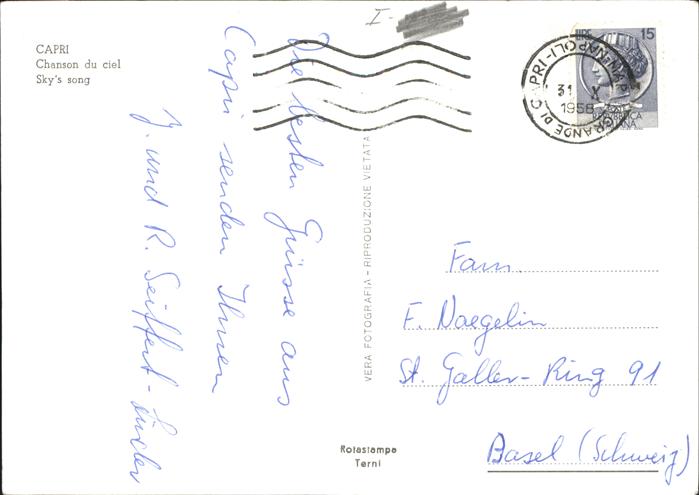 CAPRI
Chanson du ciel
Sky's song
I-
Die besten Grüsse aus
Capri senden Ihnen
J. und R. Seiffert-
VERA FOTOGRAFIA - RIPRODUZIONE VIETATA
Rotastampa
Terni
LIRE 15
31 X
1958
GRANDE DI CAPRI-(NAPOLI)
Fam.
F. Naegelin
St. Galler-Ring 91
Basel (Schweiz)